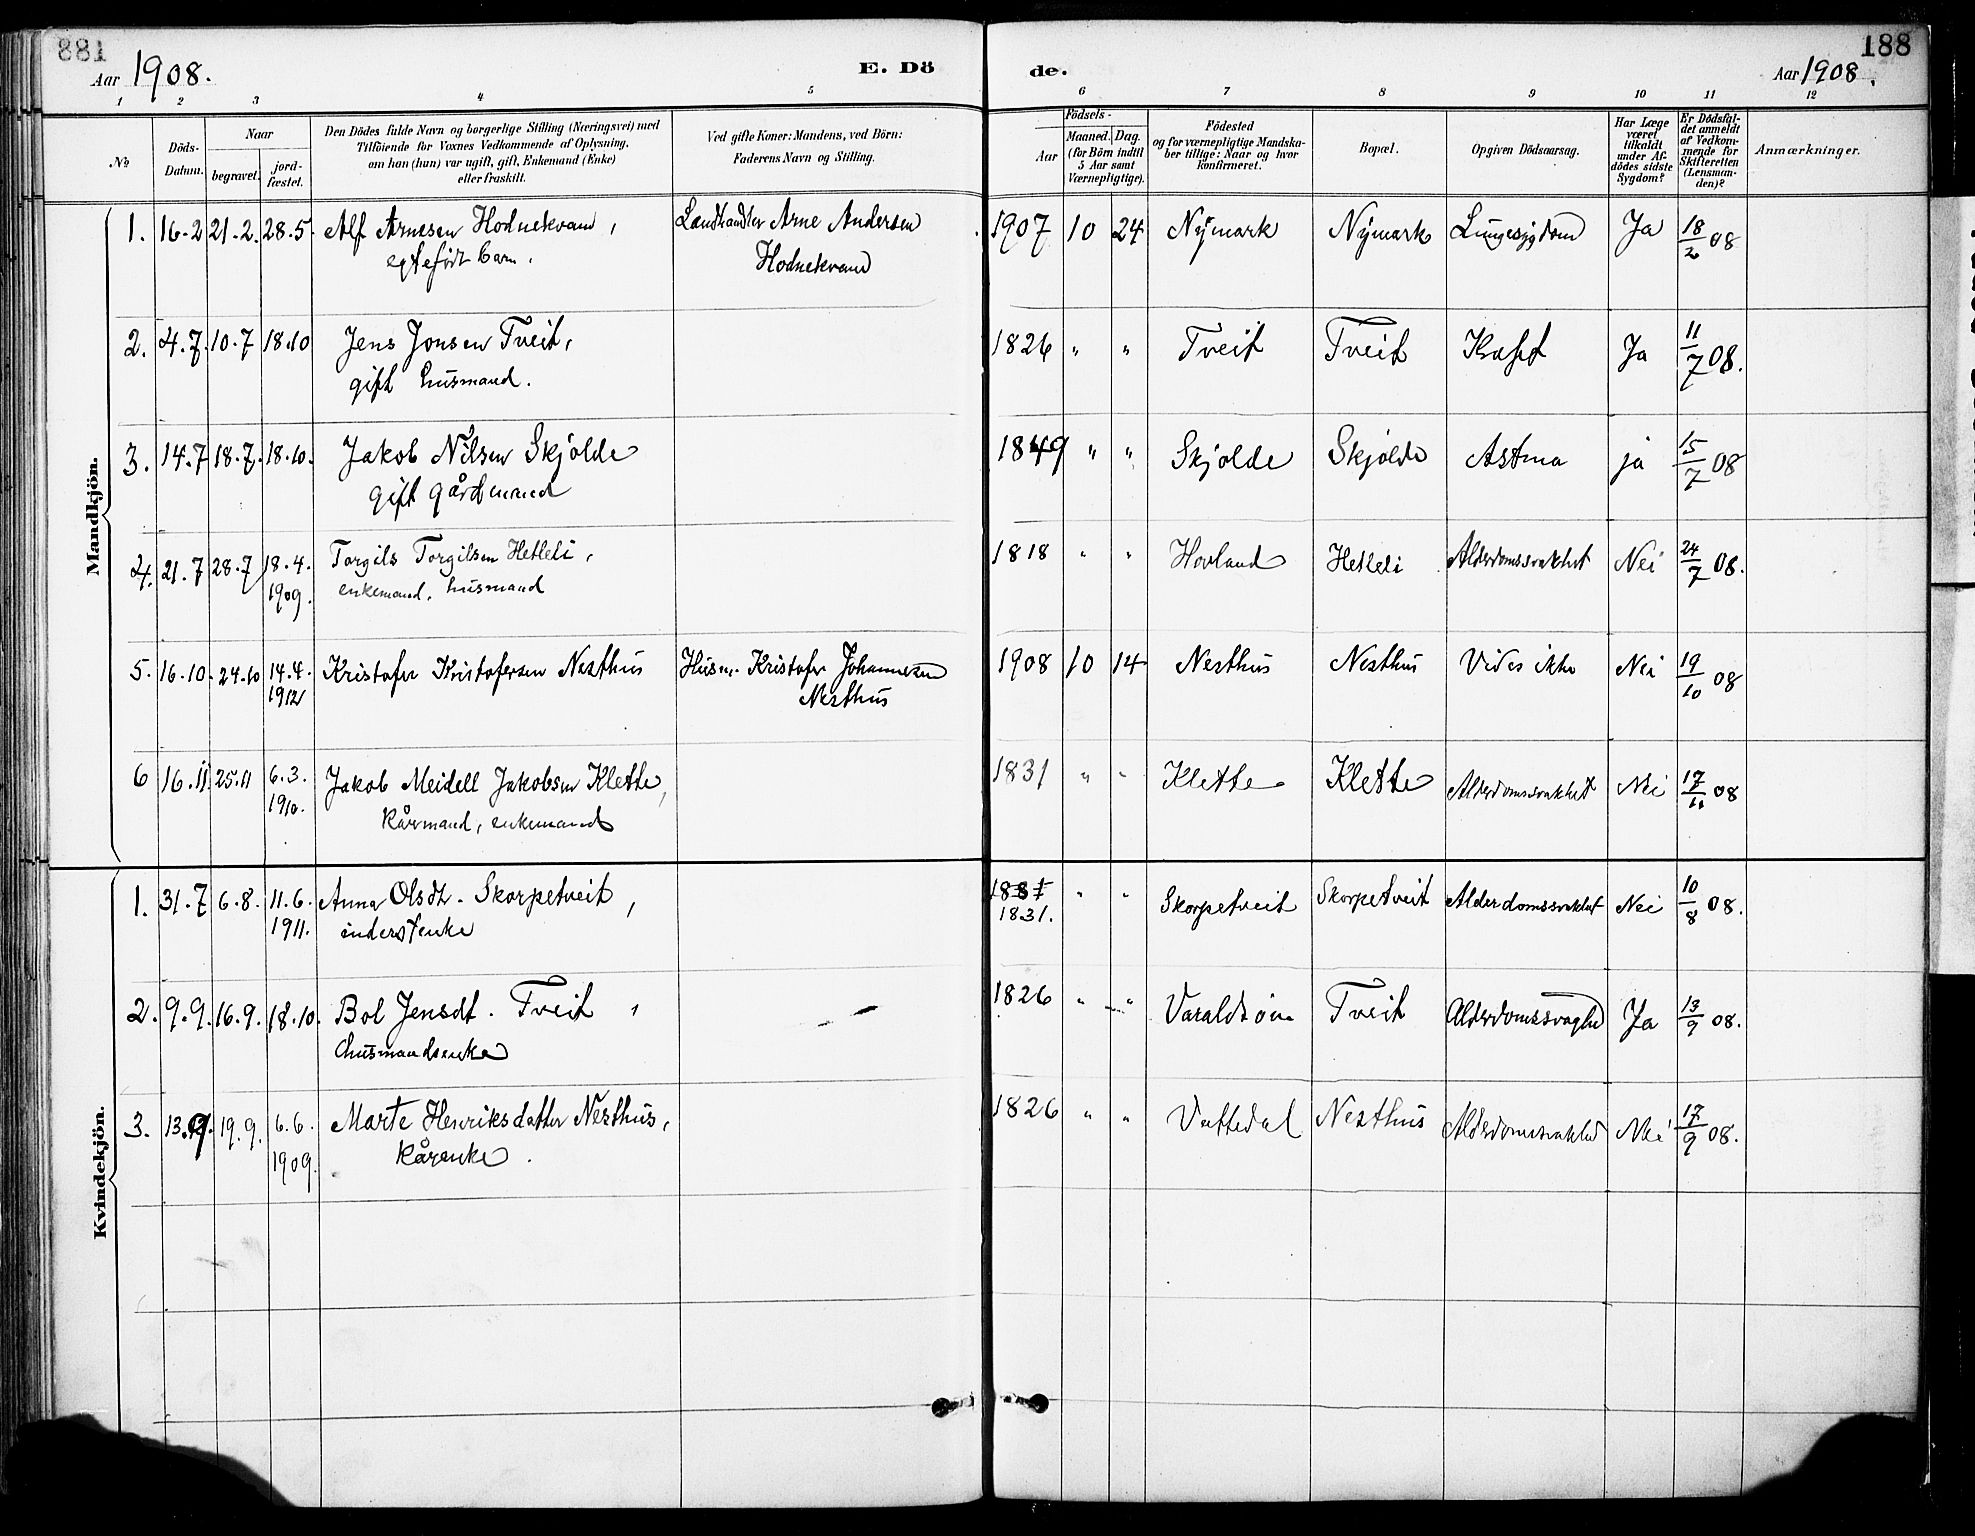 881
188
Aar 1908.
E. Dö
de.
Aar 1908.
1 2 3 4 5 6 7 8 9 10 11 12
№
Döds-
Datum.
Naar
begravet.
jord-
fæstet.
Den Dödes fulde Navn og borgerlige Stilling (Næringsvei) med
Tilföiende for Voxnes Vedkommende af Oplysning,
om han (hun) var ugift, gift, Enkemand (Enke)
eller fraskilt.
Ved gifte Koner: Mandens, ved Börn:
Faderens Navn og Stilling.
Födsels-
Aar
Maaned.
Dag.
(for Börn indtil
5 Aar samt
Værnepligtige).
Födested
og for værnepligtige Mandska-
ber tillige: Naar og hvor
konfirmeret.
Bopæl.
Opgiven Dödsaarsag.
Har Læge
været
tilkaldt
under Af-
dödes sidste
Sygdom?
Er Dödsfal-
det anmeldt
af Vedkom-
mende for
Skifteretten
(Lensman-
den)?
Anmærkninger.
Mandkjön.
1. 16.2 21.2. 28.5. Alf Arnesen Hodnekvam, Landhandler Arne Andersen 1907 10 24 Nymark Nymark Lungesygdom Ja 18/2 08
egtefödt barn. Hodnekvam
2. 4.7. 10.7 18.10 Jens Jonsen Tveit, 1826 " " Tveit Tveit Kræft Ja 11/7 08.
gift husmand.
3. 14.7 18.7. 18.10. Jakob Nilsen Skjölde 1849 " " Skjolde Skjölde Astma ja 15/7 08
gift gårdmand
4. 21.7 28.7 18.4. Torgils Torgilsen Hetleli, 1818 " " Hovland Hetleli Alderdomssvakhet Nei 24/7 08.
1909. enkemand, husmand
5. 16.10. 24.10 14.4. Kristofer Kristofersen Nesthus Husm. Kristofer Johannesen 1908 10 14 Nesthus Nesthus Vides ikke Nei 19/10 08
1912 Nesthus
6 16.11 25.11 6.3. Jakob Meidell Jakobsen Klette, 1831 " " Klette Klette Alderdomssvakhet Nei 17/11 08
1910. Kårmand, enkemand
Kvindekjön.
1. 31.7 6.8. 11.6. Anna Olsdt. Skorpetveit, 1881 " " Skorpetveit Skorpetveit Alderdomssvakhet Nei 10/8 08.
1911. inderstenke 1831.
2. 9.9. 16.9. 18.10. Bol Jensdt. Tveit, 1826 " " Varaldsöen Tveit Alderdomssvaghed Ja 13/9 08.
husmandsenke
3. 13.9 19.9. 6.6. Marte Henriksdatter Nesthus, 1826 " " Vattedal Nesthus Alderdomssvakhed Nei 17/9 08.
1909. Kårenke.